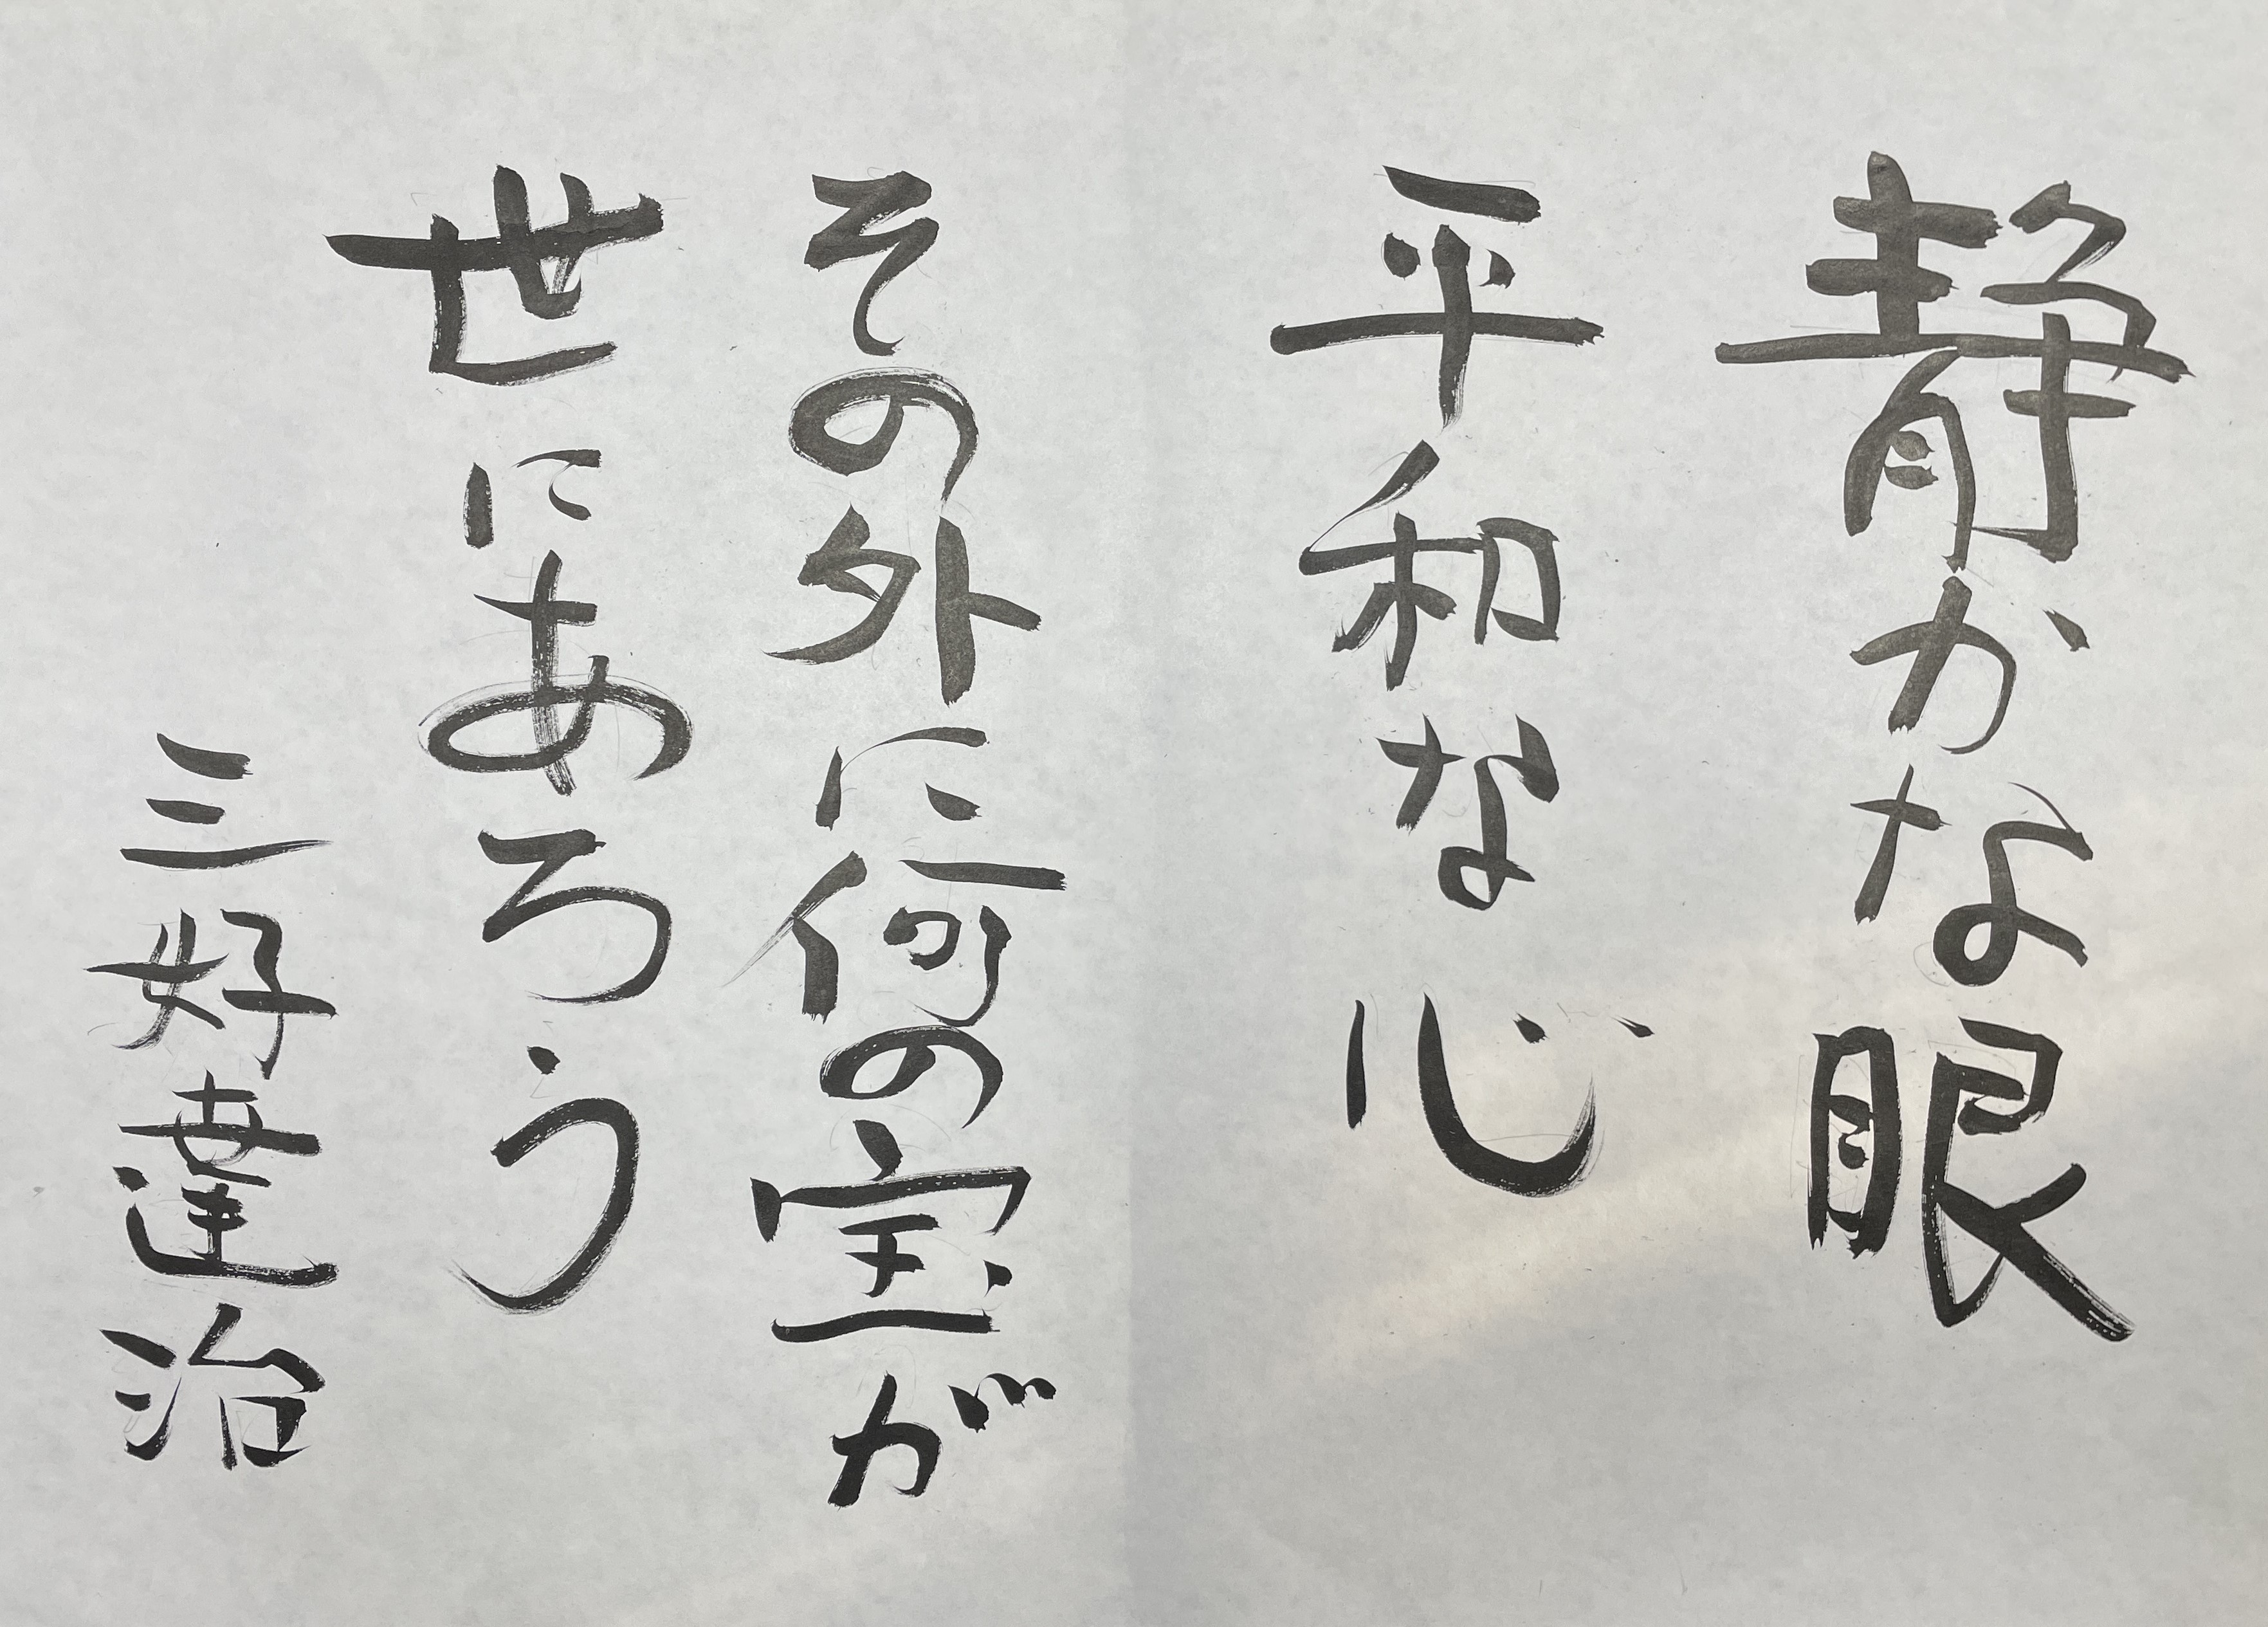 静かな眼
平和な心
その外に何の宝が
世にあろう
三好達治